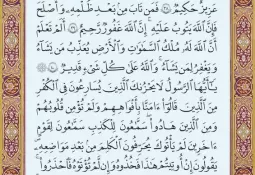 عَزِيزٌ حَكِيمٌ ۝ فَمَن تَابَ مِنۢ بَعْدِ ظُلْمِهِۦ وَأَصْلَحَ
فَإِنَّ ٱللَّهَ يَتُوبُ عَلَيْهِ ۗ إِنَّ ٱللَّهَ غَفُورٌ رَّحِيمٌ ۝ أَلَمْ تَعْلَمْ
أَنَّ ٱللَّهَ لَهُۥ مُلْكُ ٱلسَّمَٰوَٰتِ وَٱلْأَرْضِ يُعَذِّبُ مَن يَشَآءُ
وَيَغْفِرُ لِمَن يَشَآءُ ۗ وَٱللَّهُ عَلَىٰ كُلِّ شَىْءٍ قَدِيرٌ ۝
يَٰٓأَيُّهَا ٱلرَّسُولُ لَا يَحْزُنكَ ٱلَّذِينَ يُسَٰرِعُونَ فِى ٱلْكُفْرِ
مِنَ ٱلَّذِينَ قَالُوٓا۟ ءَامَنَّا بِأَفْوَٰهِهِمْ وَلَمْ تُؤْمِن قُلُوبُهُمْ
وَمِنَ ٱلَّذِينَ هَادُوا۟ ۛ سَمَّٰعُونَ لِلْكَذِبِ سَمَّٰعُونَ لِقَوْمٍ
ءَاخَرِينَ لَمْ يَأْتُوكَ ۖ يُحَرِّفُونَ ٱلْكَلِمَ مِنۢ بَعْدِ مَوَاضِعِهِۦ ۖ
يَقُولُونَ إِنْ أُوتِيتُمْ هَٰذَا فَخُذُوهُ وَإِن لَّمْ تُؤْتَوْهُ فَٱحْذَرُوا۟ ۚ